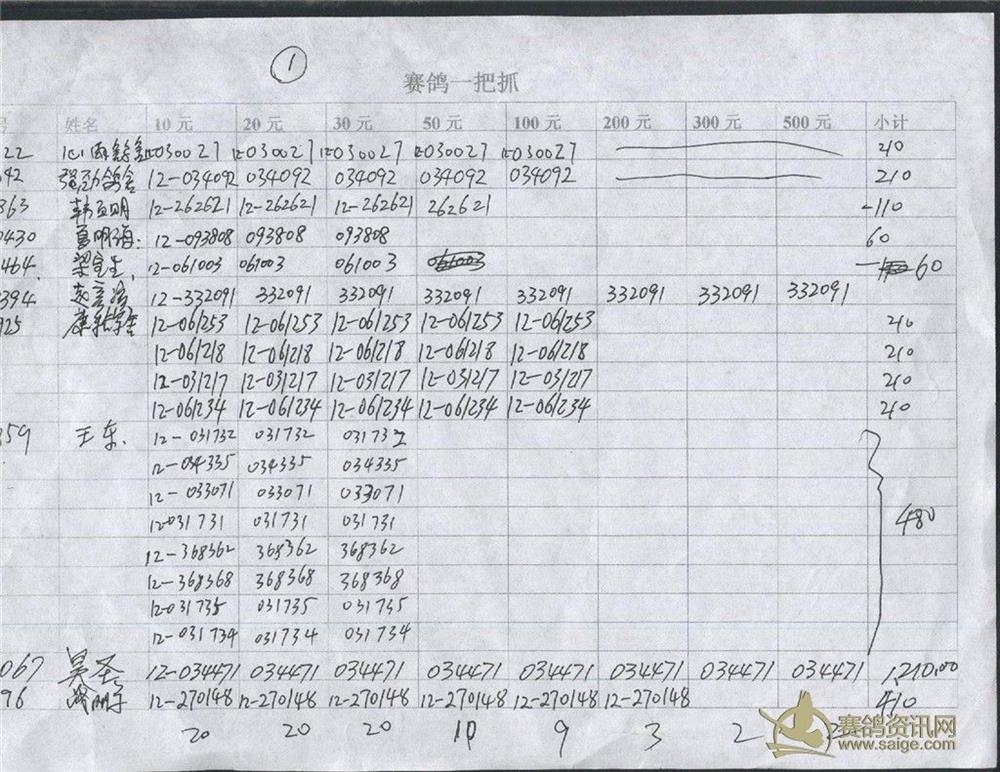 1
赛鸽一把抓
号 姓名 10 元 20 元 30 元 50 元 100 元 200 元 300 元 500 元 小计
22 12-030027 12-030027 12-030027 12-030027 12-030027 210
强劲鸽舍 12-034092 034092 034092 034092 034092 210
863 12-262621 12-262621 12-262621 262621 110
0430 12-093808 093808 093808 60
464 12-061003 061003 061003 60
394 12-332091 332091 332091 332091 332091 332091 332091 332091
925 12-061253 12-061253 12-061253 12-061253 12-061253 210
12-061218 12-061218 12-061218 12-061218 12-061218 210
12-031217 12-031217 12-031217 12-031217 12-031217 210
12-061234 12-061234 12-061234 12-061234 12-061234 210
859 王东. 12-031732 031732 031732
12-034335 034335 034335
12-033071 033071 033071
12-031731 031731 031731
480
12-368362 368362 368362
12-368368 368368 368368
12-031735 031735 031735
12-031734 031734 031734
067 吴圣 12-034471 034471 034471 034471 034471 034471 034471 034471 1210.00
96 12-270148 12-270148 12-270148 12-270148 12-270148 12-270148 410
20 20 20 10 9 3 2 2
赛鸽资讯网
www.saige.com